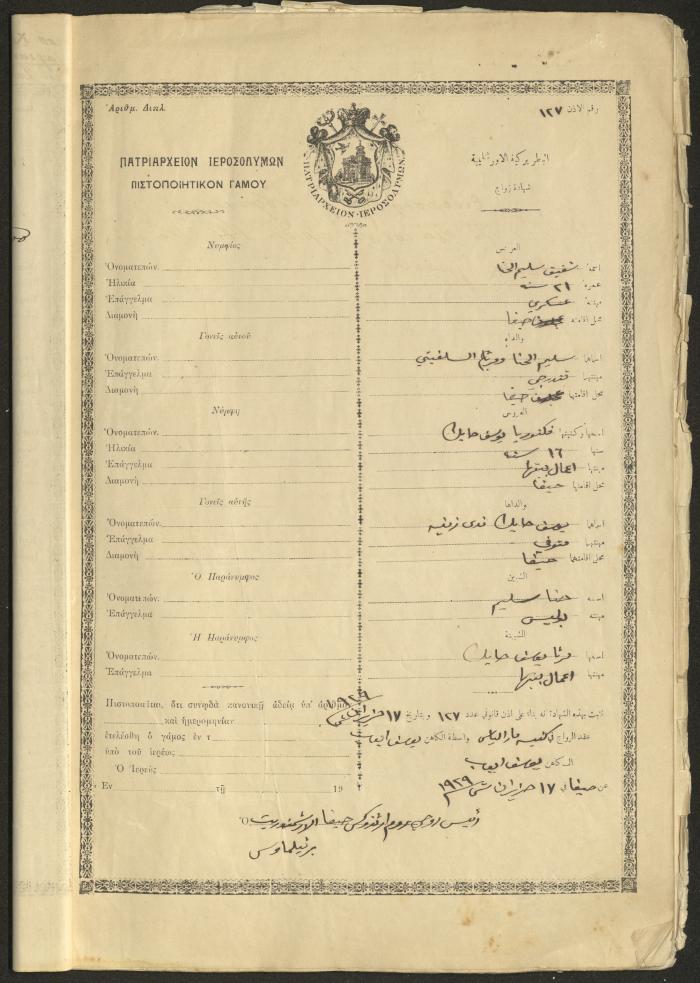 Ἀριθμ. Διπλ.
رقم الاذن ١٢٧
ΠΑΤΡΙΑΡΧΕΙΟΝ ΙΕΡΟΣΟΛΥΜΩΝ
ΠΙΣΤΟΠΟΙΗΤΙΚΟΝ ΓΑΜΟΥ
ΠΑΤΡΙΑΡΧΕΙΟΝ·ΙΕΡΟΣΟΛΥΜΩΝ
البطريركية الاورشليمية
شهادة زواج
Νυμφίος
Ὀνοματεπών.
Ἡλικία
Ἐπάγγελμα
Διαμονὴ
Γονεῖς αὐτοῦ
Ὀνοματεπών.
Ἐπάγγελμα
Διαμονὴ
Νύμφη
Ὀνοματεπών.
Ἡλικία
Ἐπάγγελμα
Διαμονὴ
Γονεῖς αὐτῆς
Ὀνοματεπών.
Ἐπάγγελμα
Διαμονὴ
Ὁ Παράνυμφος
Ὀνοματεπών.
Ἐπάγγελμα
Ἡ Παράνυμφος
Ὀνοματεπών.
Ἐπάγγελμα
Πιστοποιεῖται, ὅτι συνῳδὰ κανονικῇ ἀδείᾳ ὑπ' ἀριθμὸν
καὶ ἡμερομηνίαν
ἐτελέσθη ὁ γάμος ἐν τ
ὑπὸ τοῦ ἱερέως
Ὁ Ἱερεὺς
Ἐν τῇ 19
العريس
اسمه شفيق سليم الحنا
عمره ٢١ سنه
مهنته عسكري
محل اقامته حيفا
والداه
اسماهما سليم الحنا ومريم السلفيتي
مهنتهما قندرجي
محل اقامتهما حيفا
العروس
اسمها وكنيتها فكتوريا يوسف حايك
سنها ١٦ سنه
مهنتها اعمال بيتها
محل اقامتها حيفا
والداها
اسماهما يوسف حايك ندى
مهنتهما متوفي
محل اقامتهما حيفا
الشبين
اسمه حنا سليم
مهنته بوليس
الشبينة
اسمها يوسف حايك
مهنتها اعمال بيتها
ثابت بهذه الشهادة انه بناء على اذن قانوني عدد ١٢٧ وبتاريخ ١٧ حزيران ١٩٢٩
عقد الزواج كنيسة مار الياس واسطة الكاهن يوسف
الكاهن يوسف
عن حيفا في ١٧ حزيران سنة ١٩٢٩
Ὁ رئيس روحي روم ارثوذكس حيفا الارشمندريت